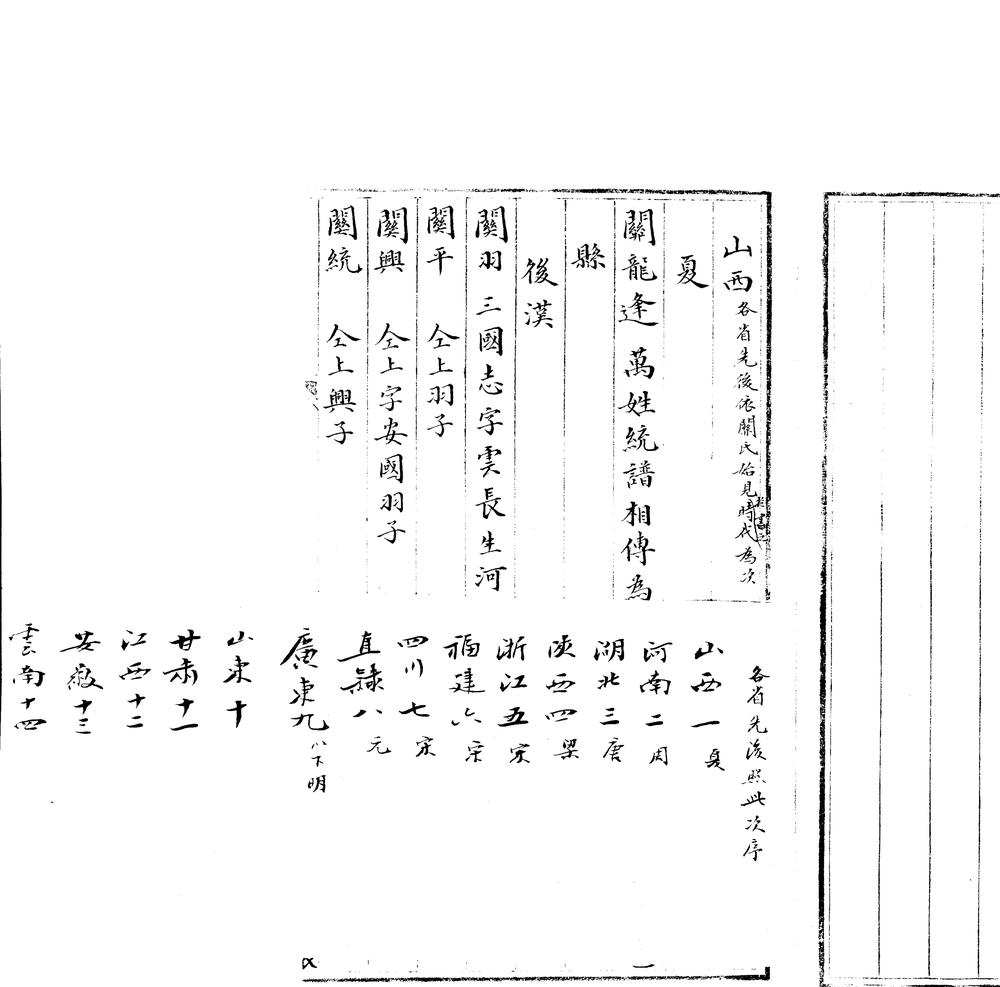 山西 各省先後依關氏始見時代為次
夏
關龍逢 萬姓統譜相傳為
縣
後漢
關羽 三國志字雲長生河
關平 仝上羽子
關興 仝上字安國羽子
關統 仝上興子
各省先後照此次序
山西一 夏
河南二 周
湖北三 唐
陝西四 梁
浙江五 宋
福建六 宋
四川七 宋
直隸八 元
廣東九 八下明
山東十
甘肅十一
江西十二
安徽十三
雲南十四
一